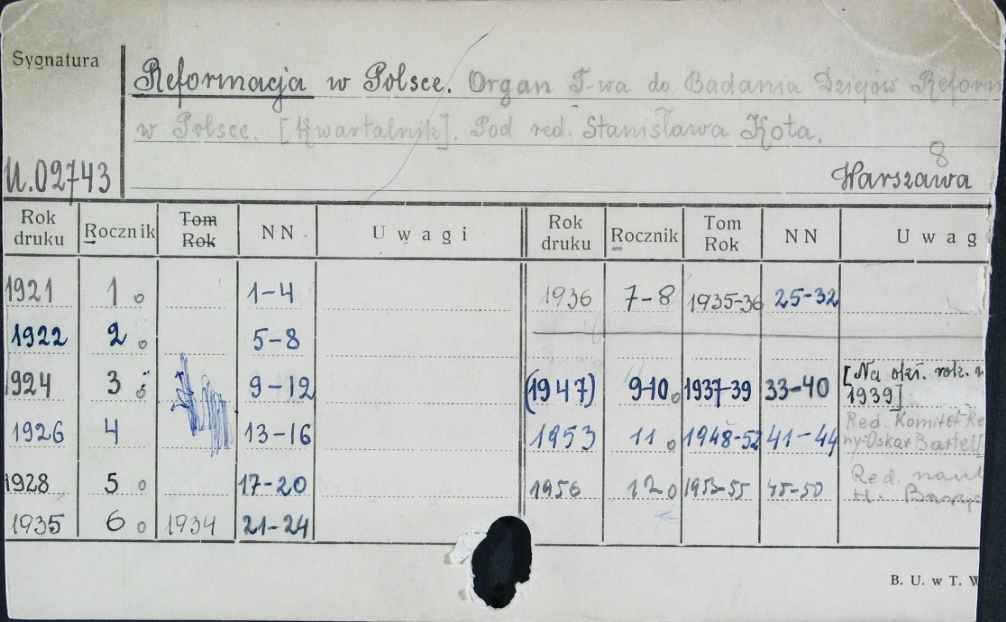 Sygnatura
Reformacja w Polsce. Organ T-wa do Badania Dziejów Reform
w Polsce. [Kwartalnik]. Pod red. Stanisława Kota.
8
U.02743 Warszawa
Rok druku Rocznik Tom Rok NN Uwagi Rok druku Rocznik Tom Rok NN Uwag
1921 1 o 1-4 1936 7-8 1935-36 25-32
1922 2 o 5-8
1924 3 o 9-12 (1947) 9-10 o 1937-39 33-40 [Na okł. rok.
1939]
1926 4 13-16 1953 11 o 1948-52 41-44 Red. Komitet
Oskar Bartel
1928 5 o 17-20 1956 12 o 1953-55 45-50 Red. nauk
H.
1935 6 o 1934 21-24
B. U. w T. W